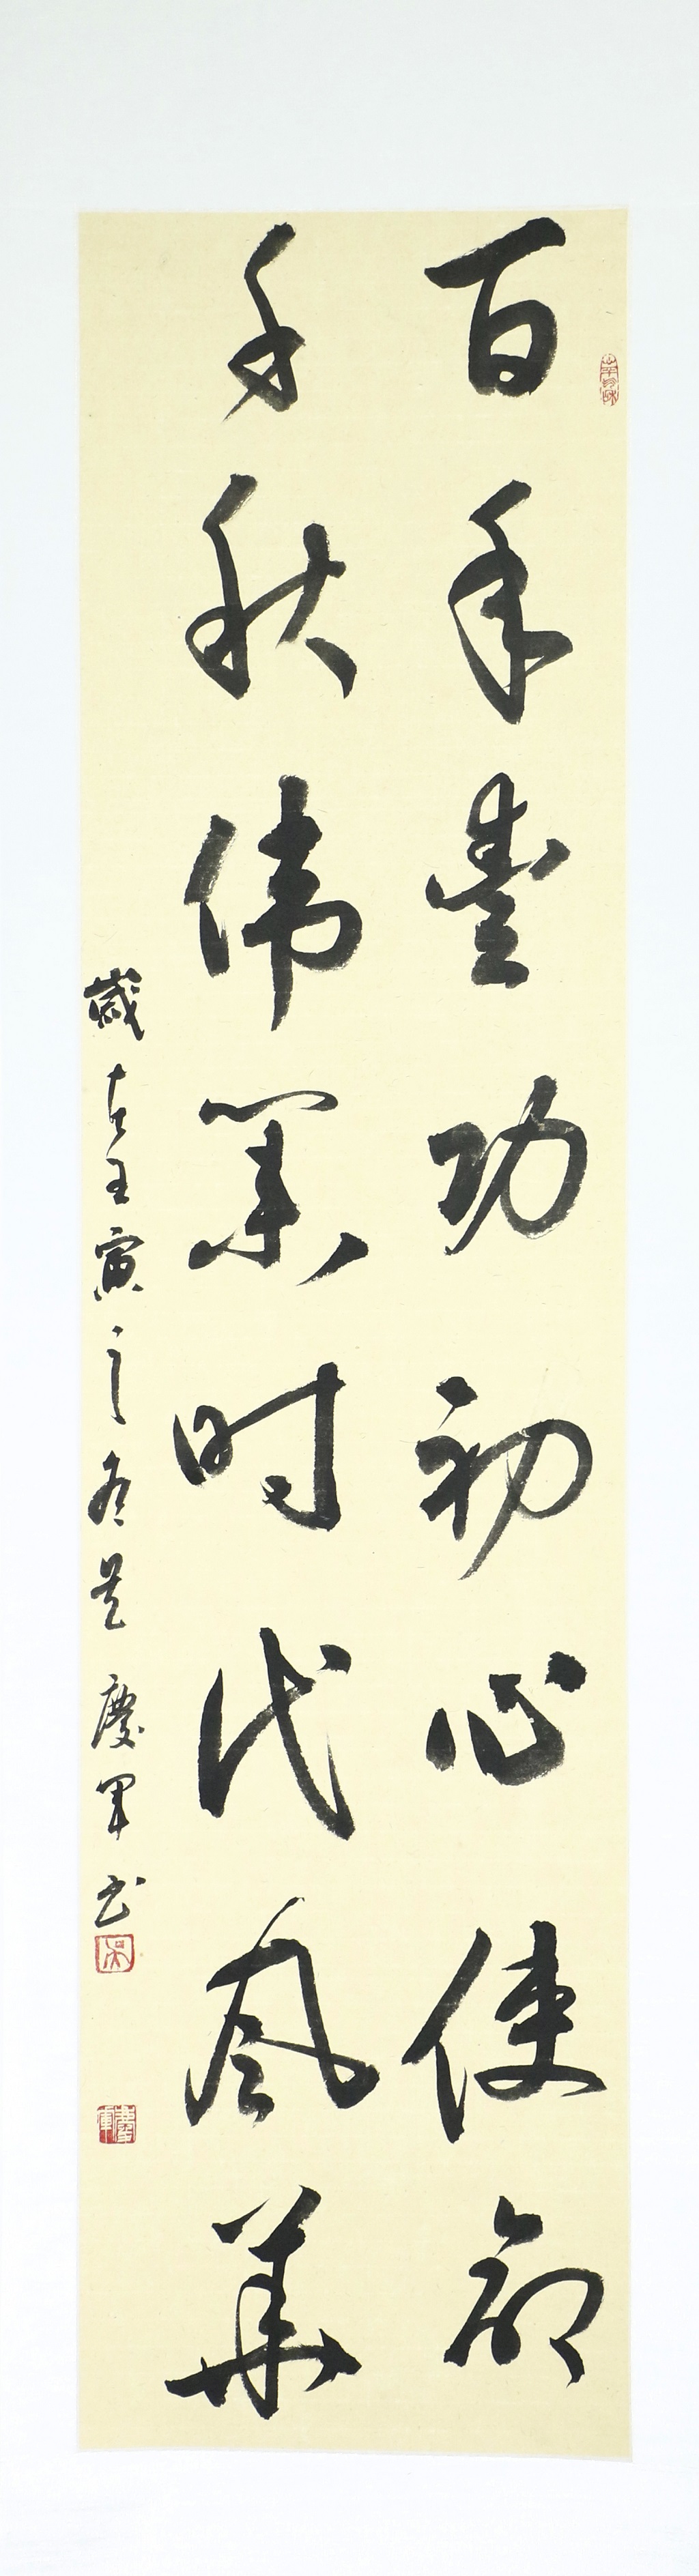 百年丰功初心使命
千秋伟业时代风华
岁在壬寅之冬吴庆军书